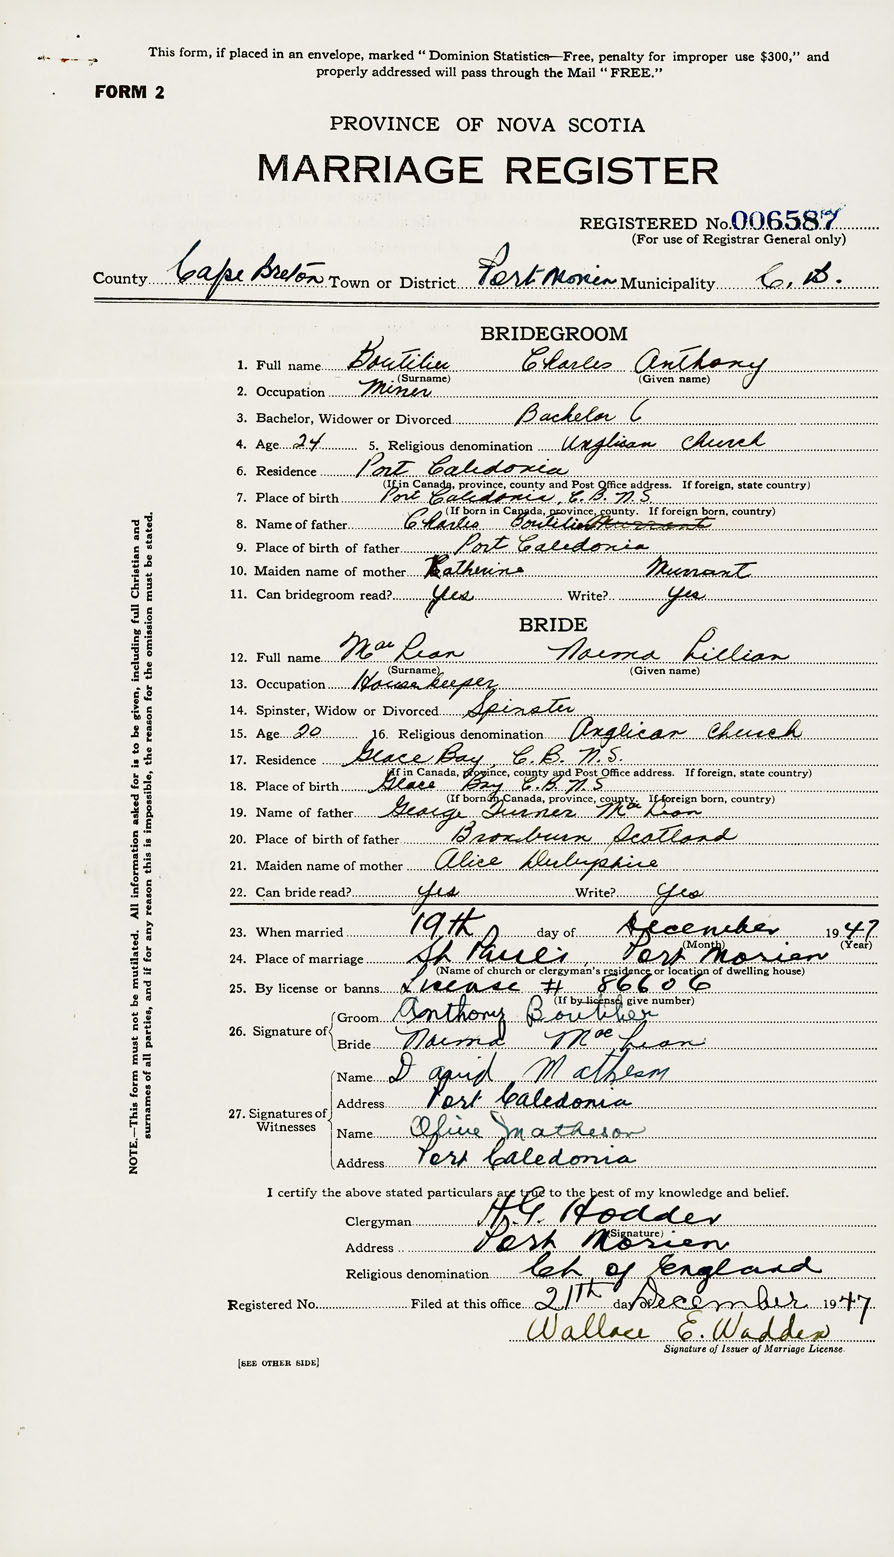 This form, if placed in an envelope, marked “Dominion Statistics—Free, penalty for improper use $300,” and
properly addressed will pass through the Mail “FREE.”
FORM 2
PROVINCE OF NOVA SCOTIA
MARRIAGE REGISTER
REGISTERED No. 006587
(For use of Registrar General only)
County Cape Breton Town or District Port Morien Municipality C. B.
BRIDEGROOM
1. Full name Boutilier Charles Anthony
(Surname) (Given name)
2. Occupation Miner
3. Bachelor, Widower or Divorced Bachelor
4. Age 24 5. Religious denomination Anglican Church
6. Residence Port Caledonia
(If in Canada, province, county and Post Office address. If foreign, state country)
7. Place of birth Port Caledonia, C. B. N. S.
(If born in Canada, province, county. If foreign born, country)
8. Name of father Charles Boutilier Murrant
9. Place of birth of father Port Caledonia
10. Maiden name of mother Katherine Murrant
11. Can bridegroom read? Yes Write? Yes
BRIDE
12. Full name MacLean Norma Lillian
(Surname) (Given name)
13. Occupation Housekeeper
14. Spinster, Widow or Divorced Spinster
15. Age 20 16. Religious denomination Anglican Church
17. Residence Glace Bay, C. B. N. S.
(If in Canada, province, county and Post Office address. If foreign, state country)
18. Place of birth Glace Bay C. B. N. S
(If born in Canada, province, county. If foreign born, country)
19. Name of father George Turner MacLean
20. Place of birth of father Broxburn Scotland
21. Maiden name of mother Alice Derbyshire
22. Can bride read? Yes Write? Yes
23. When married 19th day of December 1947
(Month) (Year)
24. Place of marriage St Paul's, Port Morien
(Name of church or clergyman's residence or location of dwelling house)
25. By license or banns License # 86606
(If by license, give number)
26. Signature of
Groom Anthony Boutilier
Bride Norma MacLean
27. Signatures of Witnesses
Name David Matheson
Address Port Caledonia
Name Olive Matheson
Address Port Caledonia
I certify the above stated particulars are true to the best of my knowledge and belief.
Clergyman H. G. Hodder
(Signature)
Address Port Morien
Religious denomination Ch of England
Registered No. Filed at this office 21th day of December 1947
Wallace E. Wadden
Signature of Issuer of Marriage License.
[SEE OTHER SIDE]
NOTE.—This form must not be mutilated. All information asked for is to be given, including full Christian and
surnames of all parties, and if for any reason this is impossible, the reason for the omission must be stated.